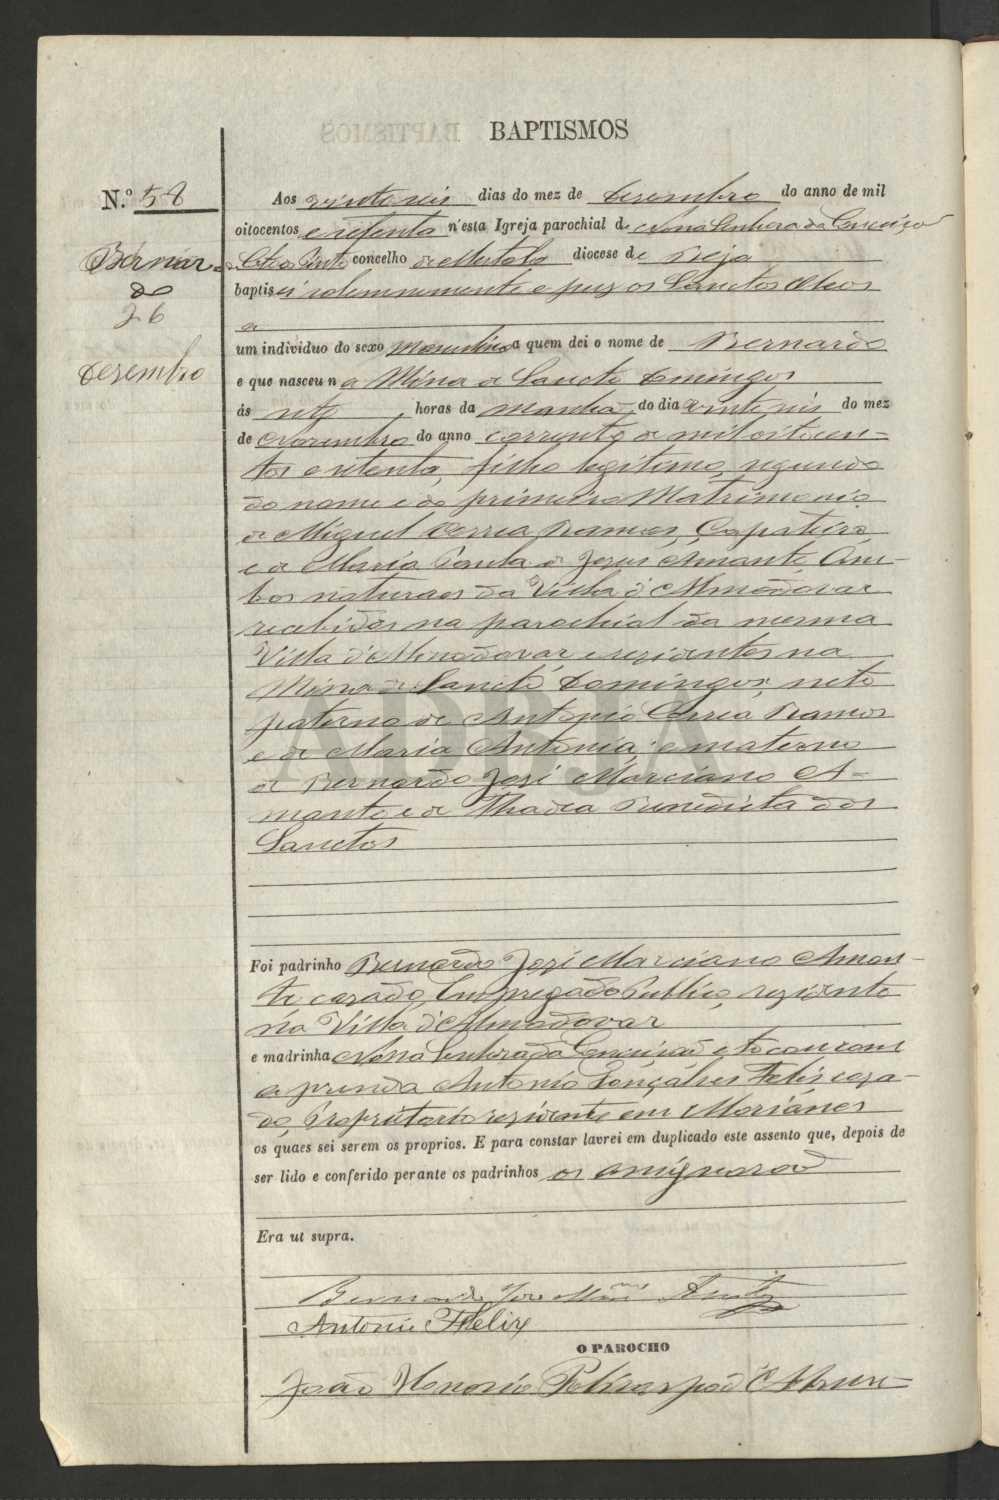 BAPTISMOS
N.º 58
Bernar-
do
26
Dezembro
Aos vinte seis dias do mez de Dezembro do anno de mil
oitocentos e setenta n'esta Igreja parochial de Nossa Senhora da Conceição
concelho de Mertola diocese de Beja
baptisei solemnemente e puz os Sanctos Oleos
a
um individuo do sexo Masculino a quem dei o nome de Bernardo
e que nasceu na Mina de Sancto Domingos
ás sete horas da manhã do dia vinte seis do mez
de Novembro do anno corrente de mil oitocen-
tos e setenta, filho legitimo, segundo
do nome e do primeiro Matrimonio
de Miguel Correa Ramos, Çapateiro
e de Maria Paula de Jezus Amante, Am-
bos naturaes da Villa d'Almodovar
recebidos na parochial da mesma
Villa d'Almodovar e rezidentes na
Mina de Sancto Domingos, neto
paterno de Antonio Correa Ramos
e de Maria Antonia; e materno
de Bernardo Jozé Marciano A-
mante e de Thadea Benedicta dos
Sanctos
Foi padrinho Bernardo Jozé Marciano Aman-
te cazado, Empregado Publico, rezidente
na Villa d'Almodovar
e madrinha Nossa Senhora da Conceição e tocou com
a prenda Antonio Gonçalves Felis caza-
do, Proprietario rezidente em Moriánes
os quaes sei serem os proprios. E para constar lavrei em duplicado este assento que, depois de
ser lido e conferido perante os padrinhos os assignarão
Era ut supra.
Bernardo José Marci Amte
Antonio Fhelix
O PAROCHO
João Honorio d'Abreu
ADBJA